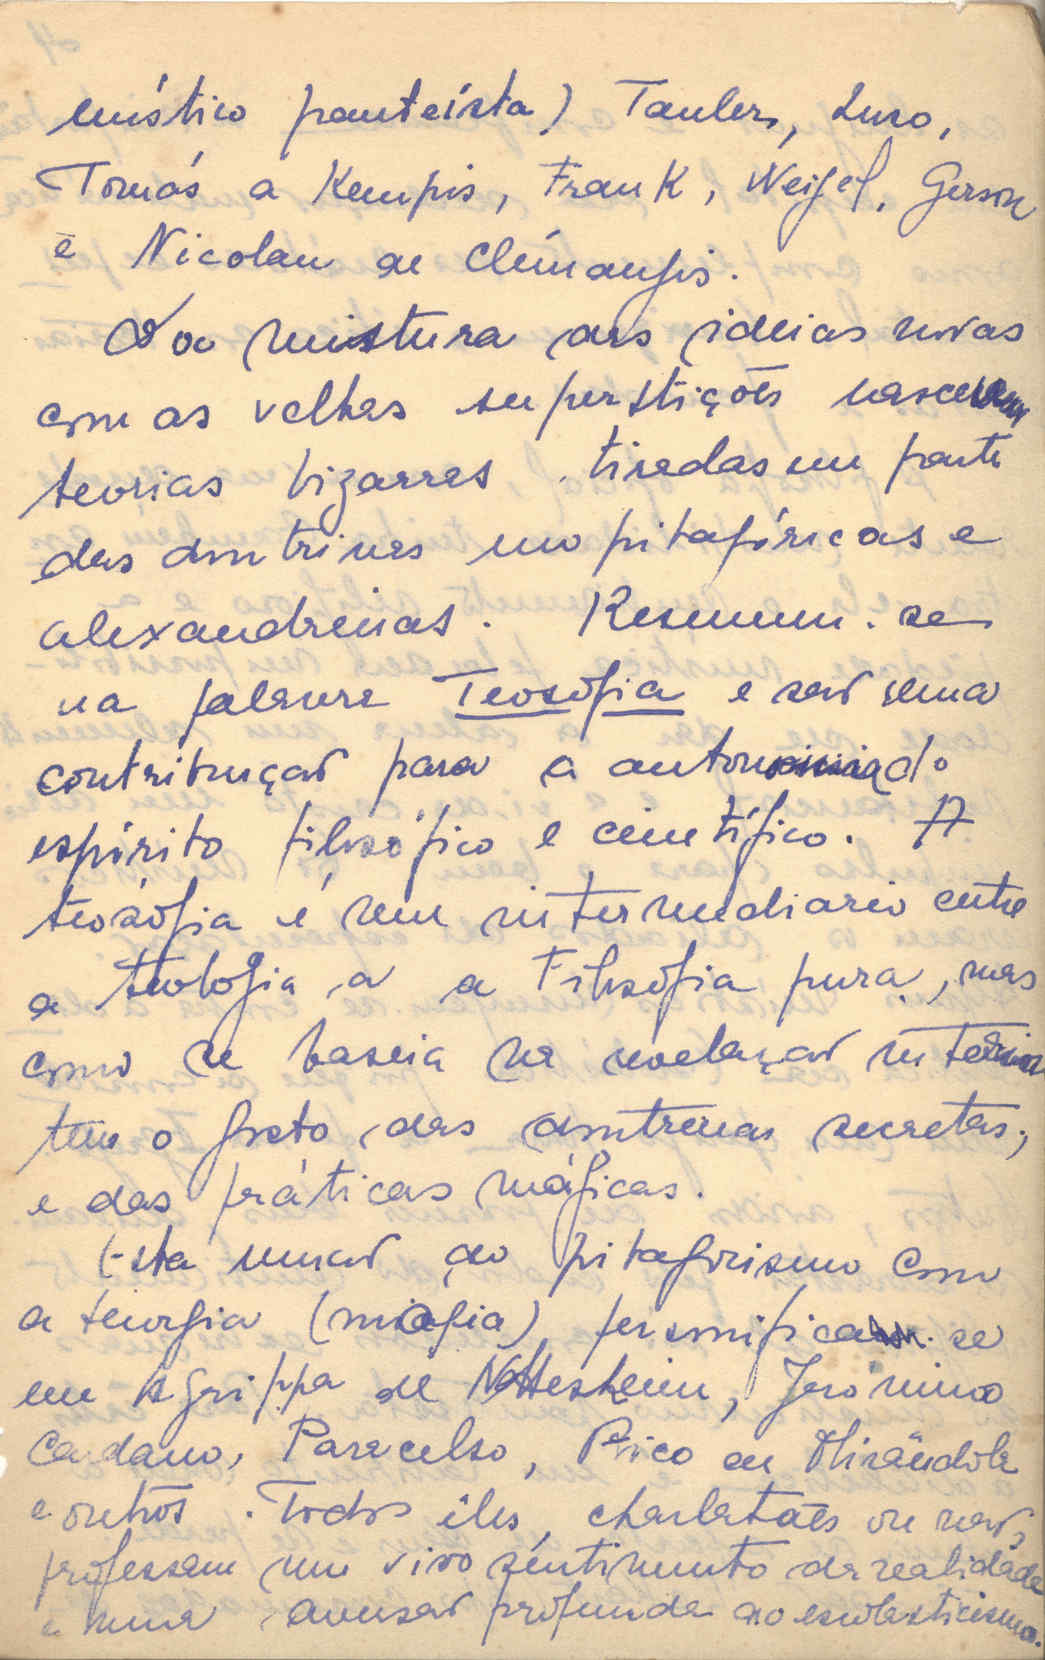 místico panteísta) Tauler, Suso,
Tomás a Kempis, Frank, Weigel, Gerson
e Nicolau de Clémangis.
Da mistura das ideias novas
com as velhas superstições nasceram
teorias bizarras tiradas em parte
das doutrinas neopitagóricas e
alexandrinas. Resumem-se
na palavra Teosofia e são uma
contribuição para a autonomia do
espírito filosófico e científico. A
teosofia é um intermediario entre
a teologia a a Filosofia pura, mas
como se baseia na revelação interior
tem o gosto das doutrinas secretas,
e das práticas mágicas.
Esta união do pitagorismo com
a teurgia (magia) personifica-se
em Agrippa de Nettesheim, Jeronimo
Cardano, Paracelso, Pico de Mirândola
e outros. Todos êles, charlatães ou não,
professam um vivo sentimento da realidade
e uma aversão profunda ao escolasticismo.